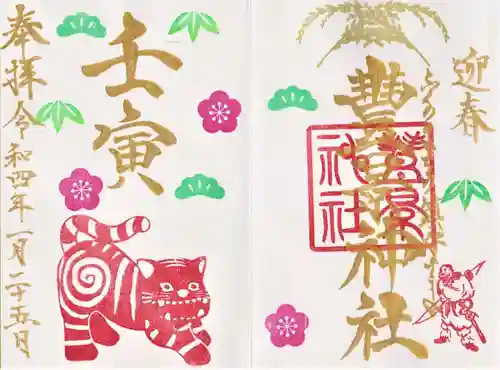 迎春
豊景神社
豊景神社
壬寅
奉拝 令和四年 一月二十五日